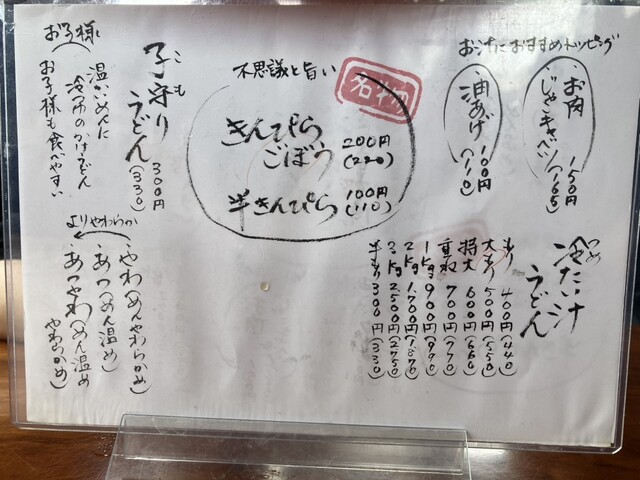 お汁におすすめトッピング
お肉
じゃキャベツ
150円
(165)
油あげ
100円
(110)
冷たい汁
つめ
うどん
400円(440)
大 500円(550)
特大 600円(660)
重ね 700円(770)
1kg 900円(990)
2kg 1,700円(1870)
3kg 2500円(2750)
半 300円(330)
名物
不思議と旨い
きんぴら
ごぼう
200円
(220)
半きんぴら
100円
(110)
子守り
こも
うどん
300円
(330)
温いめんに
冷市のかけうどん
お子様も食べやすい
お子様
よりやわらか
やわ(めんやわらかめ)
あつ(めん温め)
あつやわ(めん温め
やわらかめ)